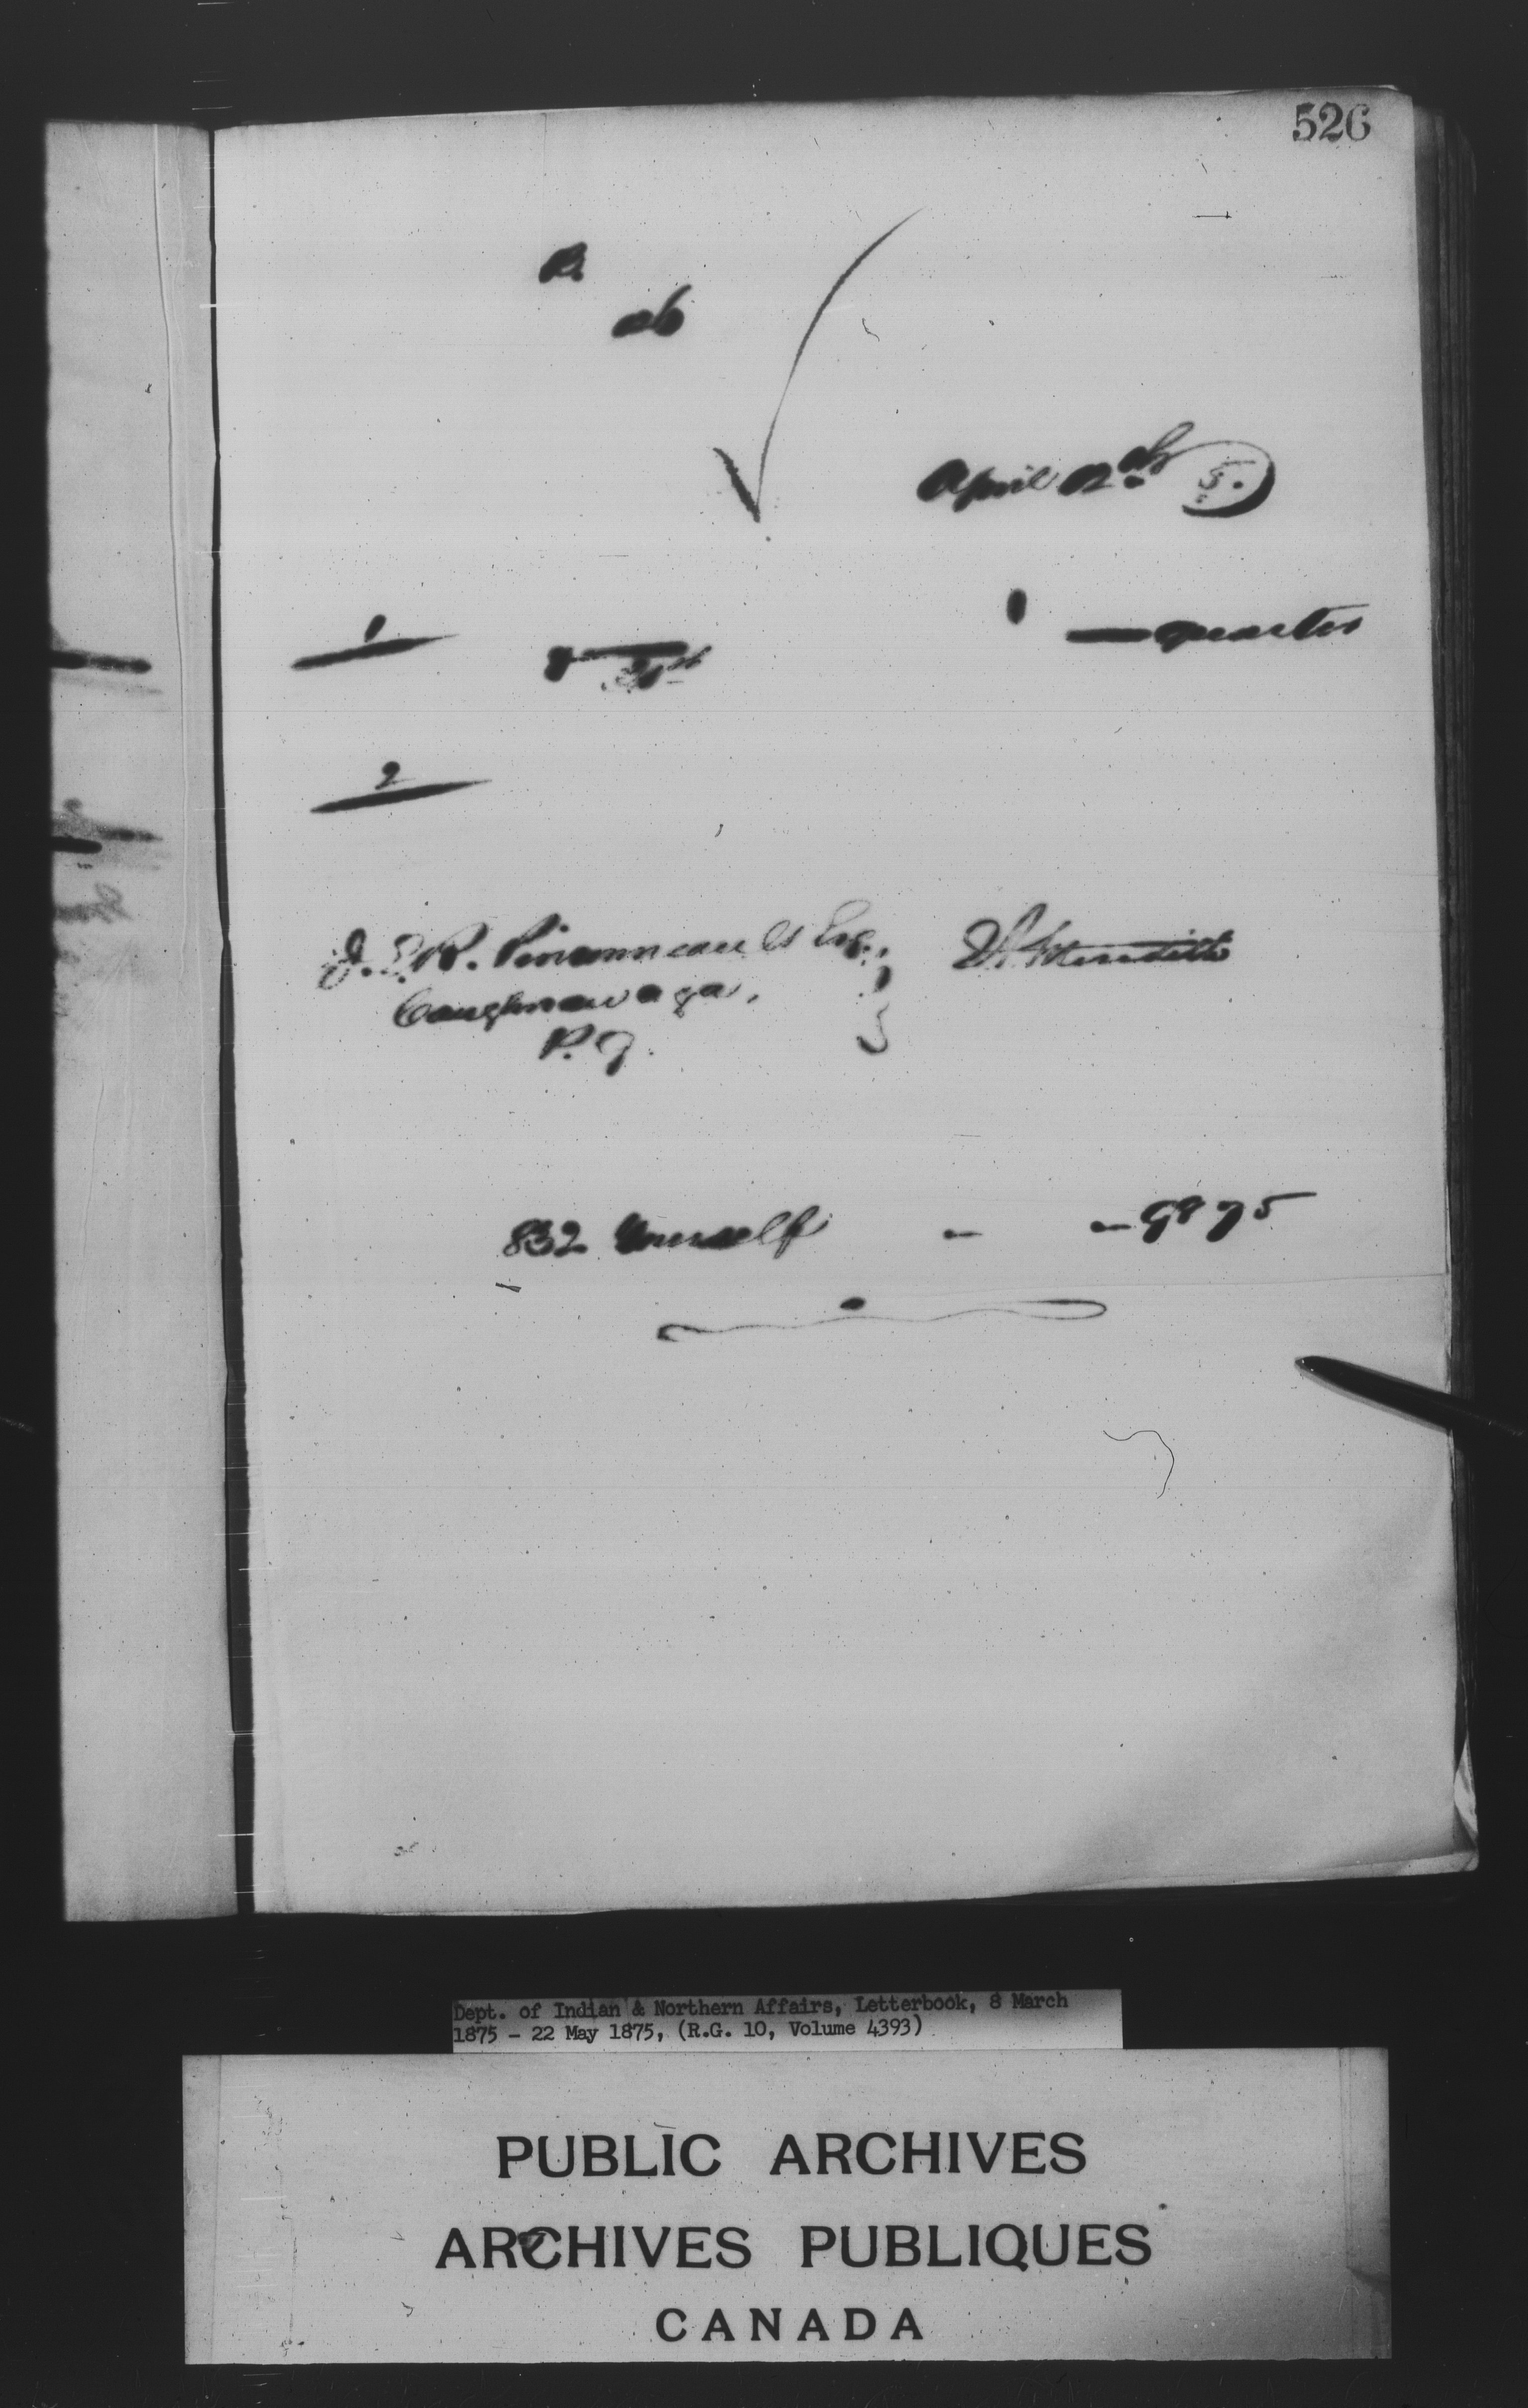 526
R.
ab
April 12th 5.
1
quarter
31st
2
J. E. R. Pinsonneault Esq.,
Caughnawaga,
P. Q.
E. A. Meredith
832 Yourself - - 98 75
Dept. of Indian & Northern Affairs, Letterbook, 8 March
1875 - 22 May 1875, (R.G. 10, Volume 4393)
PUBLIC ARCHIVES
ARCHIVES PUBLIQUES
CANADA